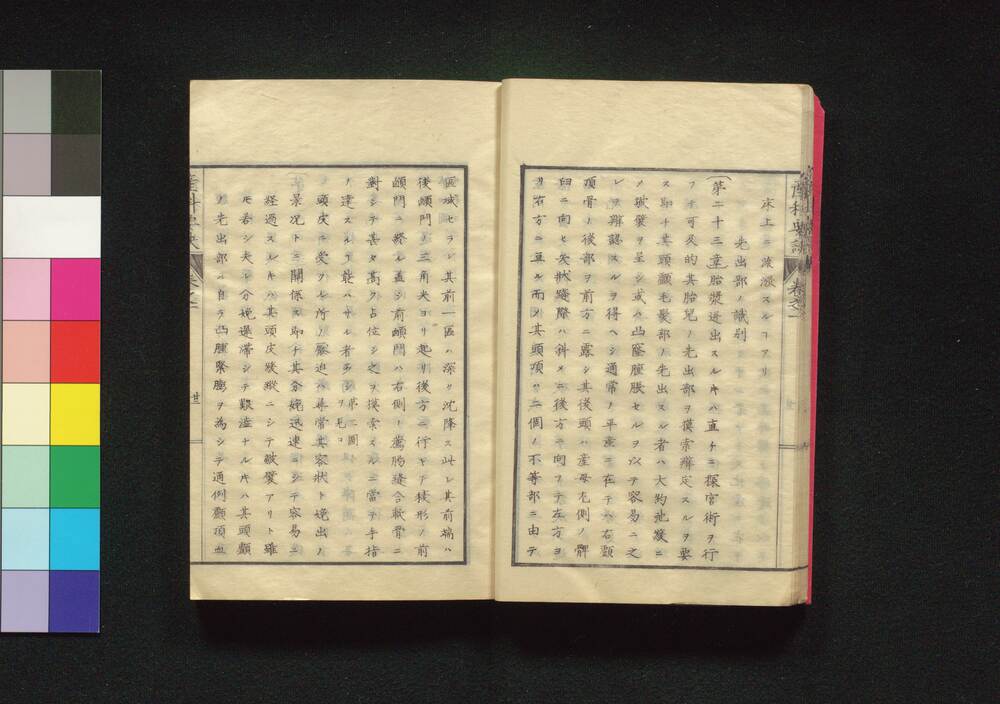 産科要訣 卷之一
床上ニ淡潑スルコアリ
先出部ノ識別
(第二十三章)胎漿迸出スルキハ直チニ探宮術ヲ行
フテ可及的其胎兒ノ先出部ヲ摸索辨定スルヲ要
ス即チ其頭顱毛髮部ノ先出スル者ハ大約弛緩ニ
ノ皺襞ヲ呈シ或ハ凸窿腫脹セルヲ以テ容易ニ之
レヲ辨認スルヲ得ヘシ通常ノ平產ニ在テハ右顱
頂骨ノ後部ヲ前方ニ露シ其後頭ハ產母左側ノ髀
臼ニ向ヒ矢狀縫際ハ斜メニ後方ニ向フテ左方ヨ
リ右方ニ亘ル而ノ其頭頂ハ二個ノ不等部ニ由テ
區域セラレ其前一區ハ深ク沈降ス此レ其前端ハ
後顖門ノ三角尖ヨリ起リ後方ニ行キテ稜形ノ前
顖門ニ終ル蓋シ前顖門ハ右側ノ薦腸縫合軟骨ニ
對シテ甚タ高ク占位シ之ヲ摸索スルニ當テ手指
ノ達スル能ハサル者多シ第二圖ヲ見ヨ
頭皮ニ受クル所ノ壓迫ハ尋常其容狀ト娩出ノ
景况トニ關係ス即チ其分娩迅速ニシテ容易ニ
經過スルキハ其頭皮緩縱ニシテ皺襞アリト雖
モ若シ夫レ分娩遷滯シテ艱澁ナルキハ其頭顱
ノ先出部ハ自ラ凸腫緊膨ヲ為シテ通例顱頂血
廿三